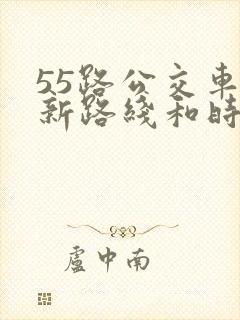 55路公交車
新路綫和時
盧中南